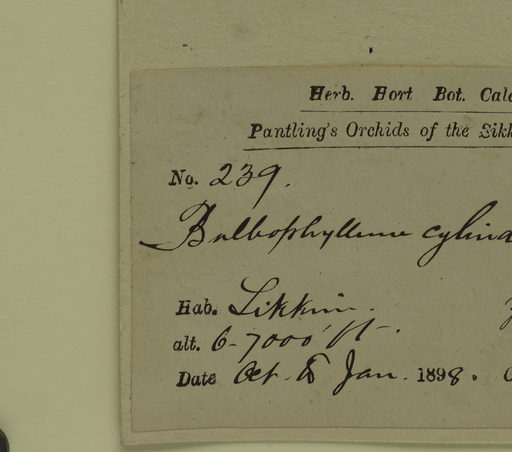 Herb. Hort Bot. Calc
Pantling's Orchids of the Sikk
No. 239.
Bulbophyllum cylind
Hab. Sikkim.
alt. 6-7000 ft.
Date Oct. & Jan. 1898.